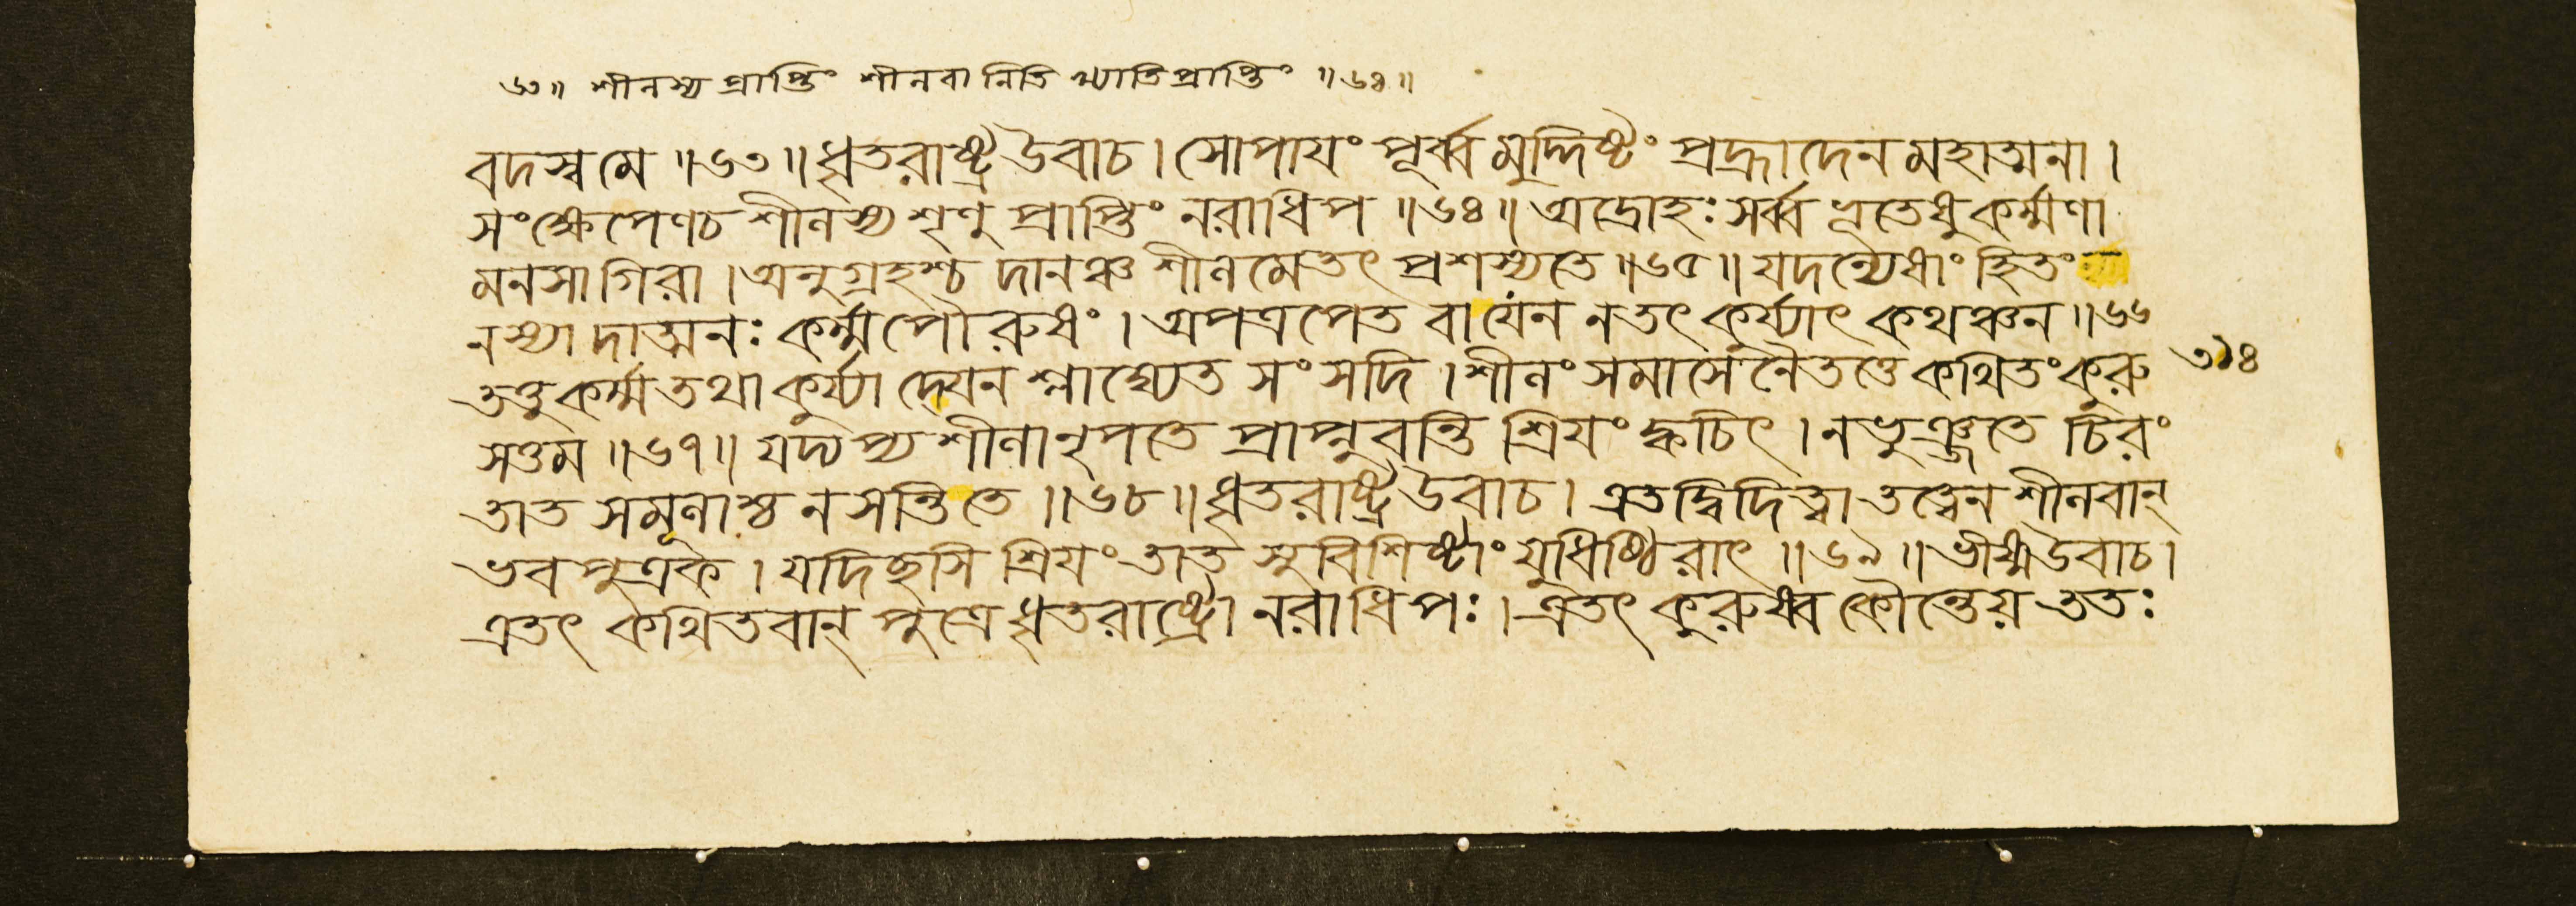 ৬৩॥ শীলস্য প্রাপ্তিং শীলবানিতি খ্যাতিপ্রাপ্তিং ॥৬৪॥
বদস্ব মে ॥৬৩॥ ধৃতরাষ্ট্র উবাচ। সোপায়ং পূর্ব্বমুদ্দিষ্টং প্রহ্লাদেন মহাত্মনা।
সংক্ষেপেণ চ শীলস্য শৃণু প্রাপ্তিং নরাধিপ ॥৬৪॥ অদ্রোহঃ সর্ব্বভূতেষু কর্ম্মণা
মনসা গিরা। অনুগ্রহশ্চ দানঞ্চ শীলমেতৎ প্রশস্যতে ॥৬৫॥ যদন্যেষাং হিতং
ন স্যাদাত্মনঃ কর্ম্ম পৌরুষং। অপত্রপেত বা যেন ন তৎ কুর্য্যাৎ কথঞ্চন ॥৬৬
তত্তু কর্ম্ম তথা কুর্য্যাদ্যেন শ্লাঘ্যেত সংসদি। শীলং সমাসেনৈতত্তে কথিতং কুরু ৩১৪
সত্তম ॥৬৭॥ যদ্যপ্যশীলা নৃপতে প্রাপ্নুবন্তি শ্রিয়ং ক্বচিৎ। ন ভুঞ্জতে চিরং
তাত সমূলাশ্চ ন সন্তি তে ॥৬৮॥ ধৃতরাষ্ট্র উবাচ। এতদ্বিদিত্বা তত্ত্বেন শীলবান্
ভব পুত্রক। যদিচ্ছসি শ্রিয়ং তাত সুবিশিষ্টাং যুধিষ্ঠিরাৎ ॥৬৯॥ ভীষ্ম উবাচ।
এতৎ কথিতবান্ পুত্রে ধৃতরাষ্ট্রো নরাধিপঃ। এতৎ কুরুষ্ব কৌন্তেয় ততঃ